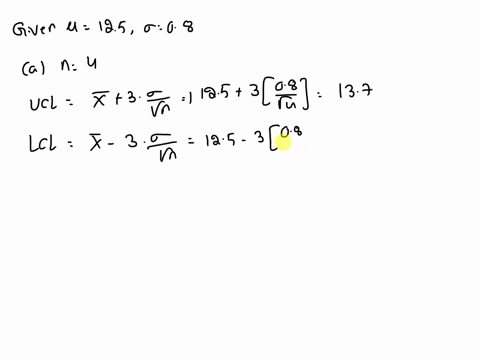 Given μ = 12.5, σ = 0.8
(a) n = 4
UCL = x̄ + 3 · σ/√n = 12.5 + 3 [0.8/√4] = 13.7
LCL = x̄ - 3 · σ/√n = 12.5 - 3 [0.8